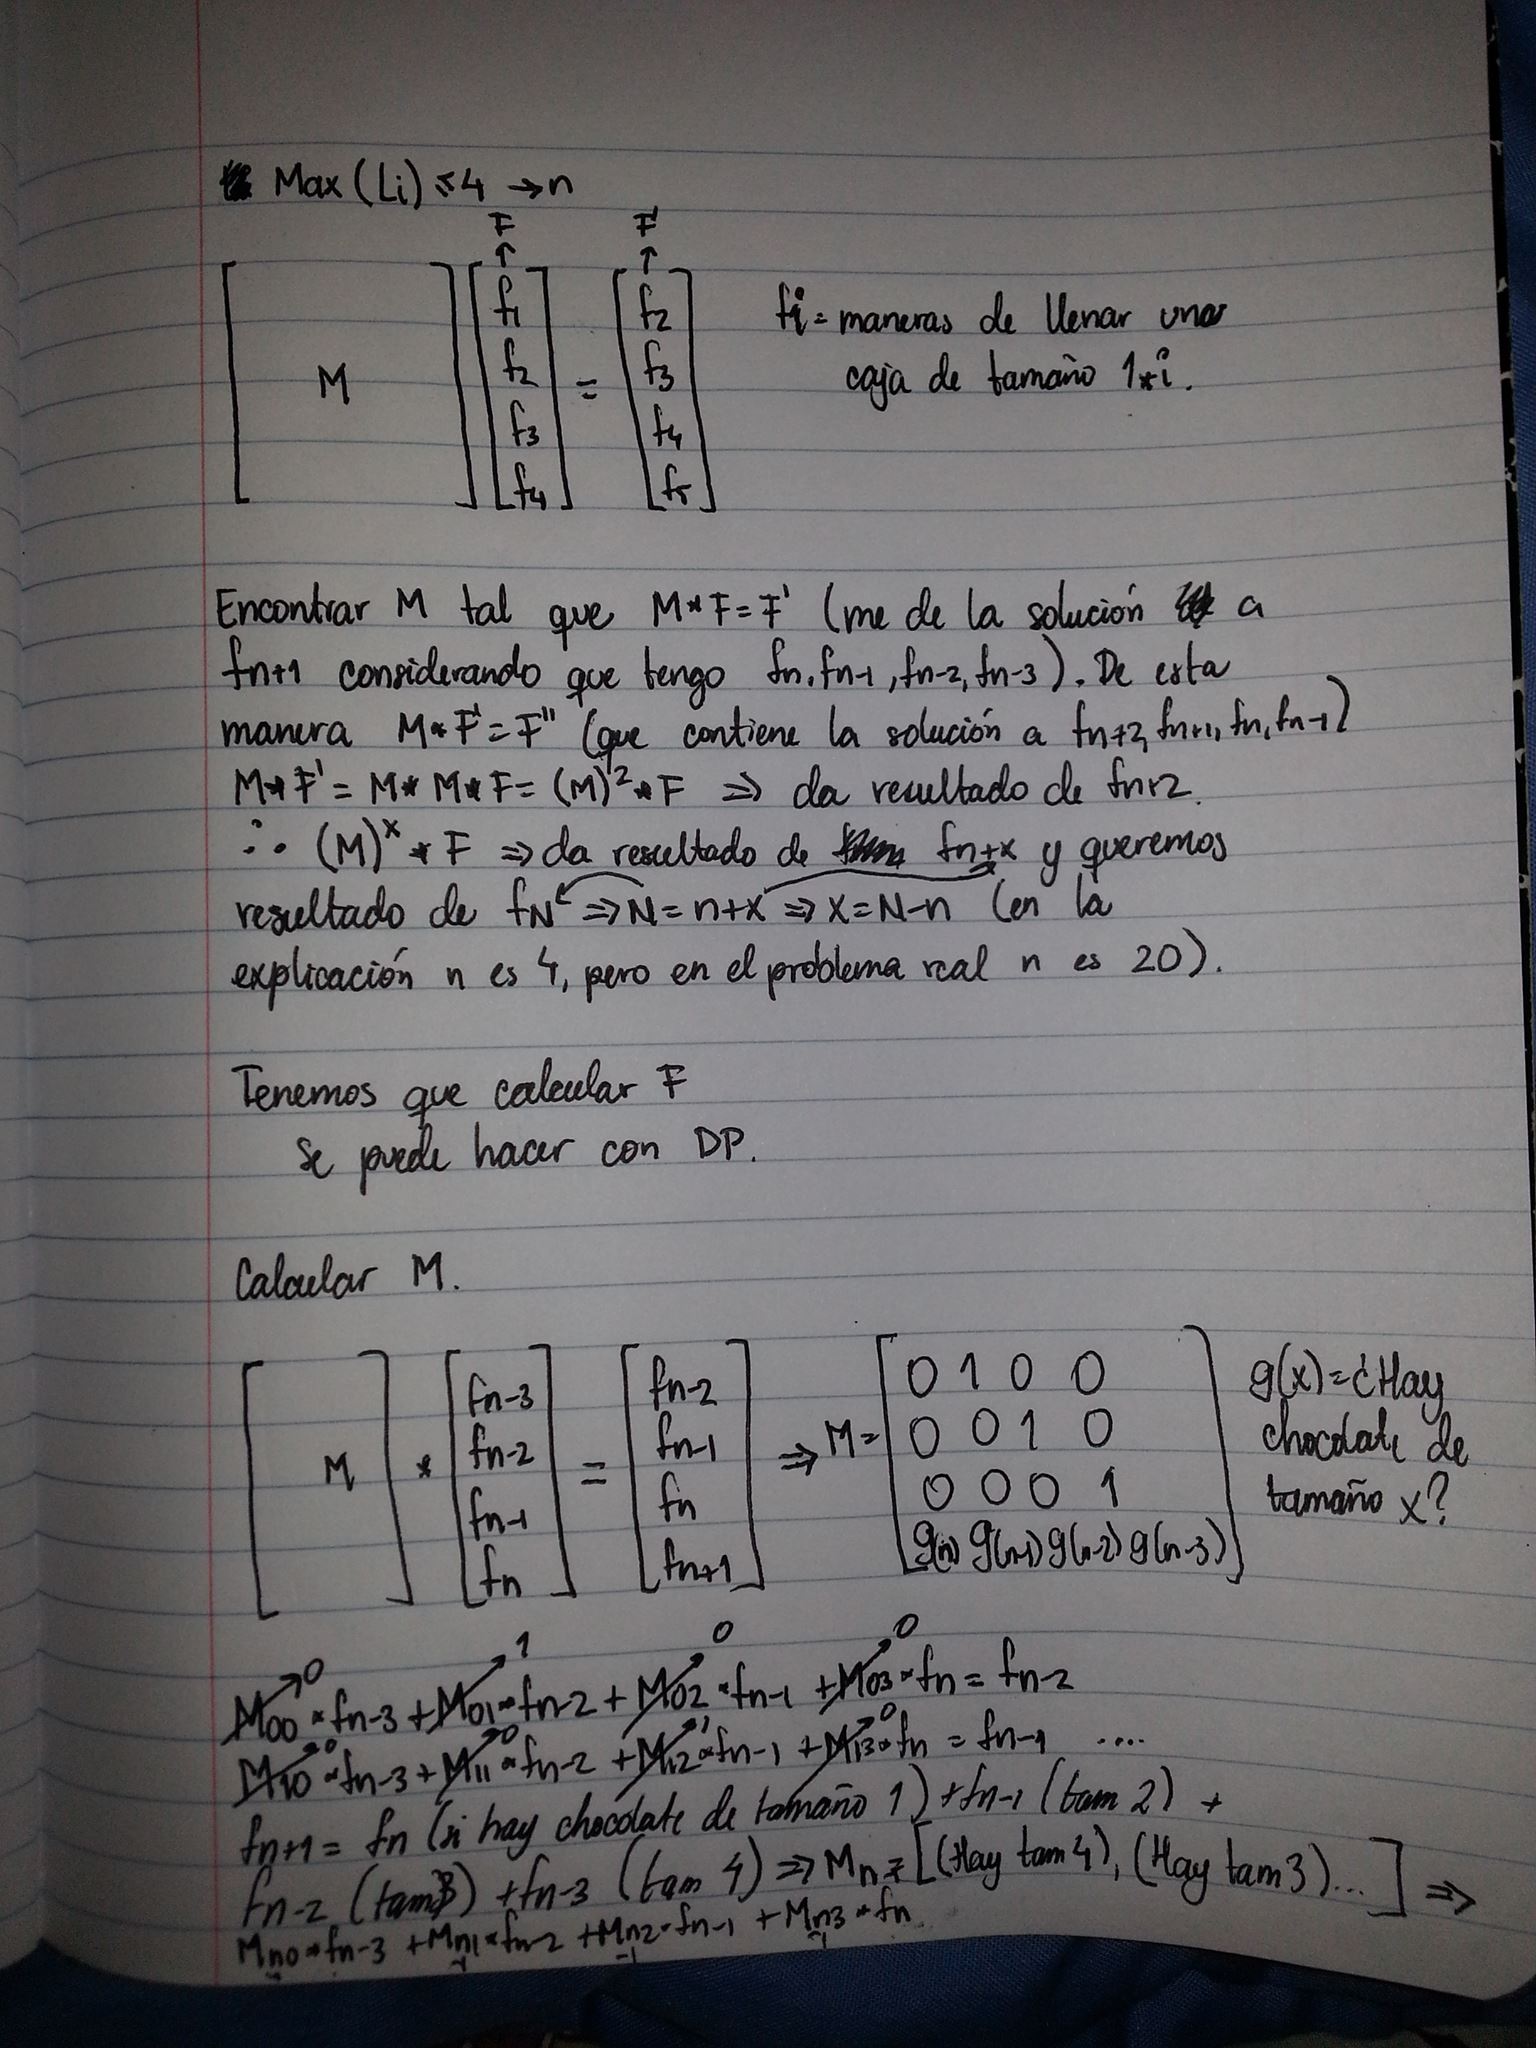 Max (Li) ≤ 4 → n
F F'
↑ ↑
[ M ] [ f1 f2 f3 f4 ] = [ f2 f3 f4 f5 ]
fi = maneras de llenar una
caja de tamaño 1*i.
Encontrar M tal que M*F=F' (me de la solución a
fn+1 considerando que tengo fn, fn-1, fn-2, fn-3). De esta
manera M*F'=F'' (que contiene la solución a fn+2, fn+1, fn, fn-1)
M*F' = M*M*F = (M)²*F ⇒ da resultado de fn+2.
∴ (M)ˣ * F ⇒ da resultado de fn+x y queremos
resultado de fN ⇒ N=n+x ⇒ x=N-n (en la
explicación n es 4, pero en el problema real n es 20).
Tenemos que calcular F
se puede hacer con DP.
Calcular M.
[ M ] * [ fn-3 fn-2 fn-1 fn ] = [ fn-2 fn-1 fn fn+1 ] ⇒ M =
0 1 0 0
0 0 1 0
0 0 0 1
g(n) g(n-1) g(n-2) g(n-3)
g(x)=¿Hay
chocolate de
tamaño x?
0 1 0 0
M00*fn-3 + M01*fn-2 + M02*fn-1 + M03*fn = fn-2
0 0 1 0
M10*fn-3 + M11*fn-2 + M12*fn-1 + M13*fn = fn-1 ....
fn+1 = fn (si hay chocolate de tamaño 1) + fn-1 (tam 2) +
fn-2 (tam 3) + fn-3 (tam 4) ⇒ Mn = [(Hay tam 4), (Hay tam 3)... ] ⇒
Mn0*fn-3 + Mn1*fn-2 + Mn2*fn-1 + Mn3*fn